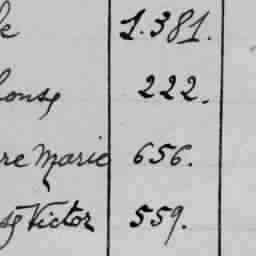 le 1.381.
onse 222.
re Marie 656.
Victor 559.